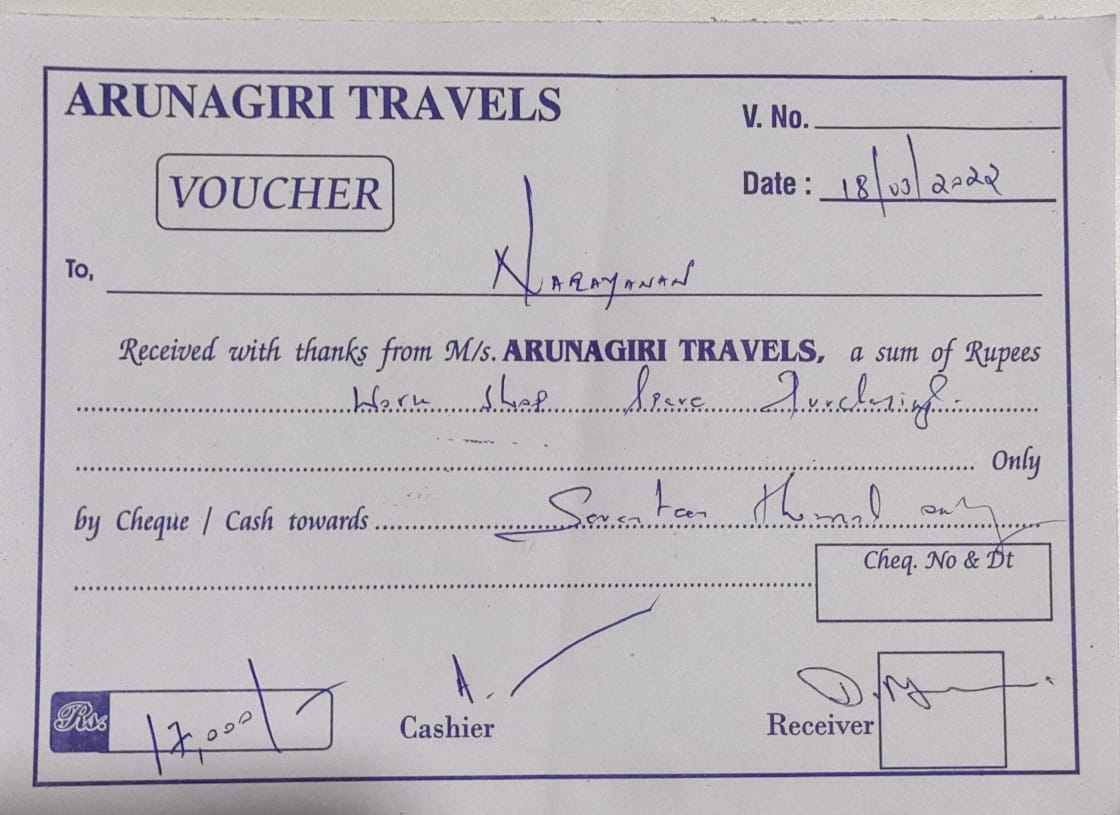 ARUNAGIRI TRAVELS
V. No.
VOUCHER
Date : 18/03/2022
To, NARAYANAN
Received with thanks from M/s. ARUNAGIRI TRAVELS, a sum of Rupees
Work Shop Spare Purchasing
Only
by Cheque / Cash towards Seventeen thousand only
Cheq. No & Dt
Rs. 17,000/-
A.
Cashier
Receiver